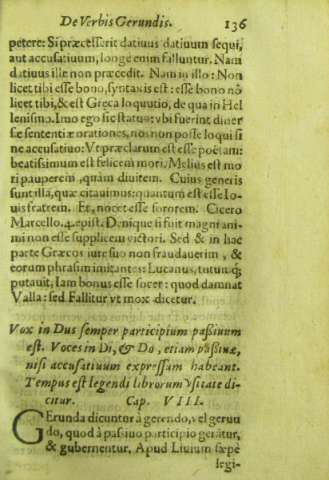 De Verbis Gerundis. 136
petere: Si præcesserit datiuus datiuum sequi,
aut accusatiuum, longe enim falluntur. Nam
datiuus ille non præcedit. Nam in illo: Non
licet tibi esse bono, syntaxis est: esse bono nõ
licet tibi, & est Græca loquutio, de qua in Hel
lenismo. Imo ego sic statuo: vbi fuerint diuer
sæ sententiæ orationes, nos non posse loqui si
ne accusatiuo: Vt præclarum est esse poëtam:
beatissimum est felicem mori. Melius est mo
ri pauperem, quàm diuitem. Cuius generis
sunt illa, quæ citauimus: quantum est esse Io-
uis fratrem. Et, nocet esse sororem. Cicero
Marcello. 4. epist. Denique si fuit magni ani-
mi non esse supplicem victori. Sed & in hac
parte Græcos iure suo non fraudauerim, &
eorum phrasim imitantes: Lucanus, tutumq́;
putauit, Iam bonus esse socer: quod damnat
Valla: sed Fallitur vt mox dicetur.
Vox in Dus semper participium paßiuum
est. Voces in Di, & Do, etiam paßiuæ,
nisi accusatiuum expressam habeant.
Tempus est legendi librorum vsitate di-
citur. Cap. VIII.
GErunda dicuntur à gerendo, vel gerun
do, quod à passiuo participio gerãtur,
& gubernentur. Apud Liuium sæpè
legi-